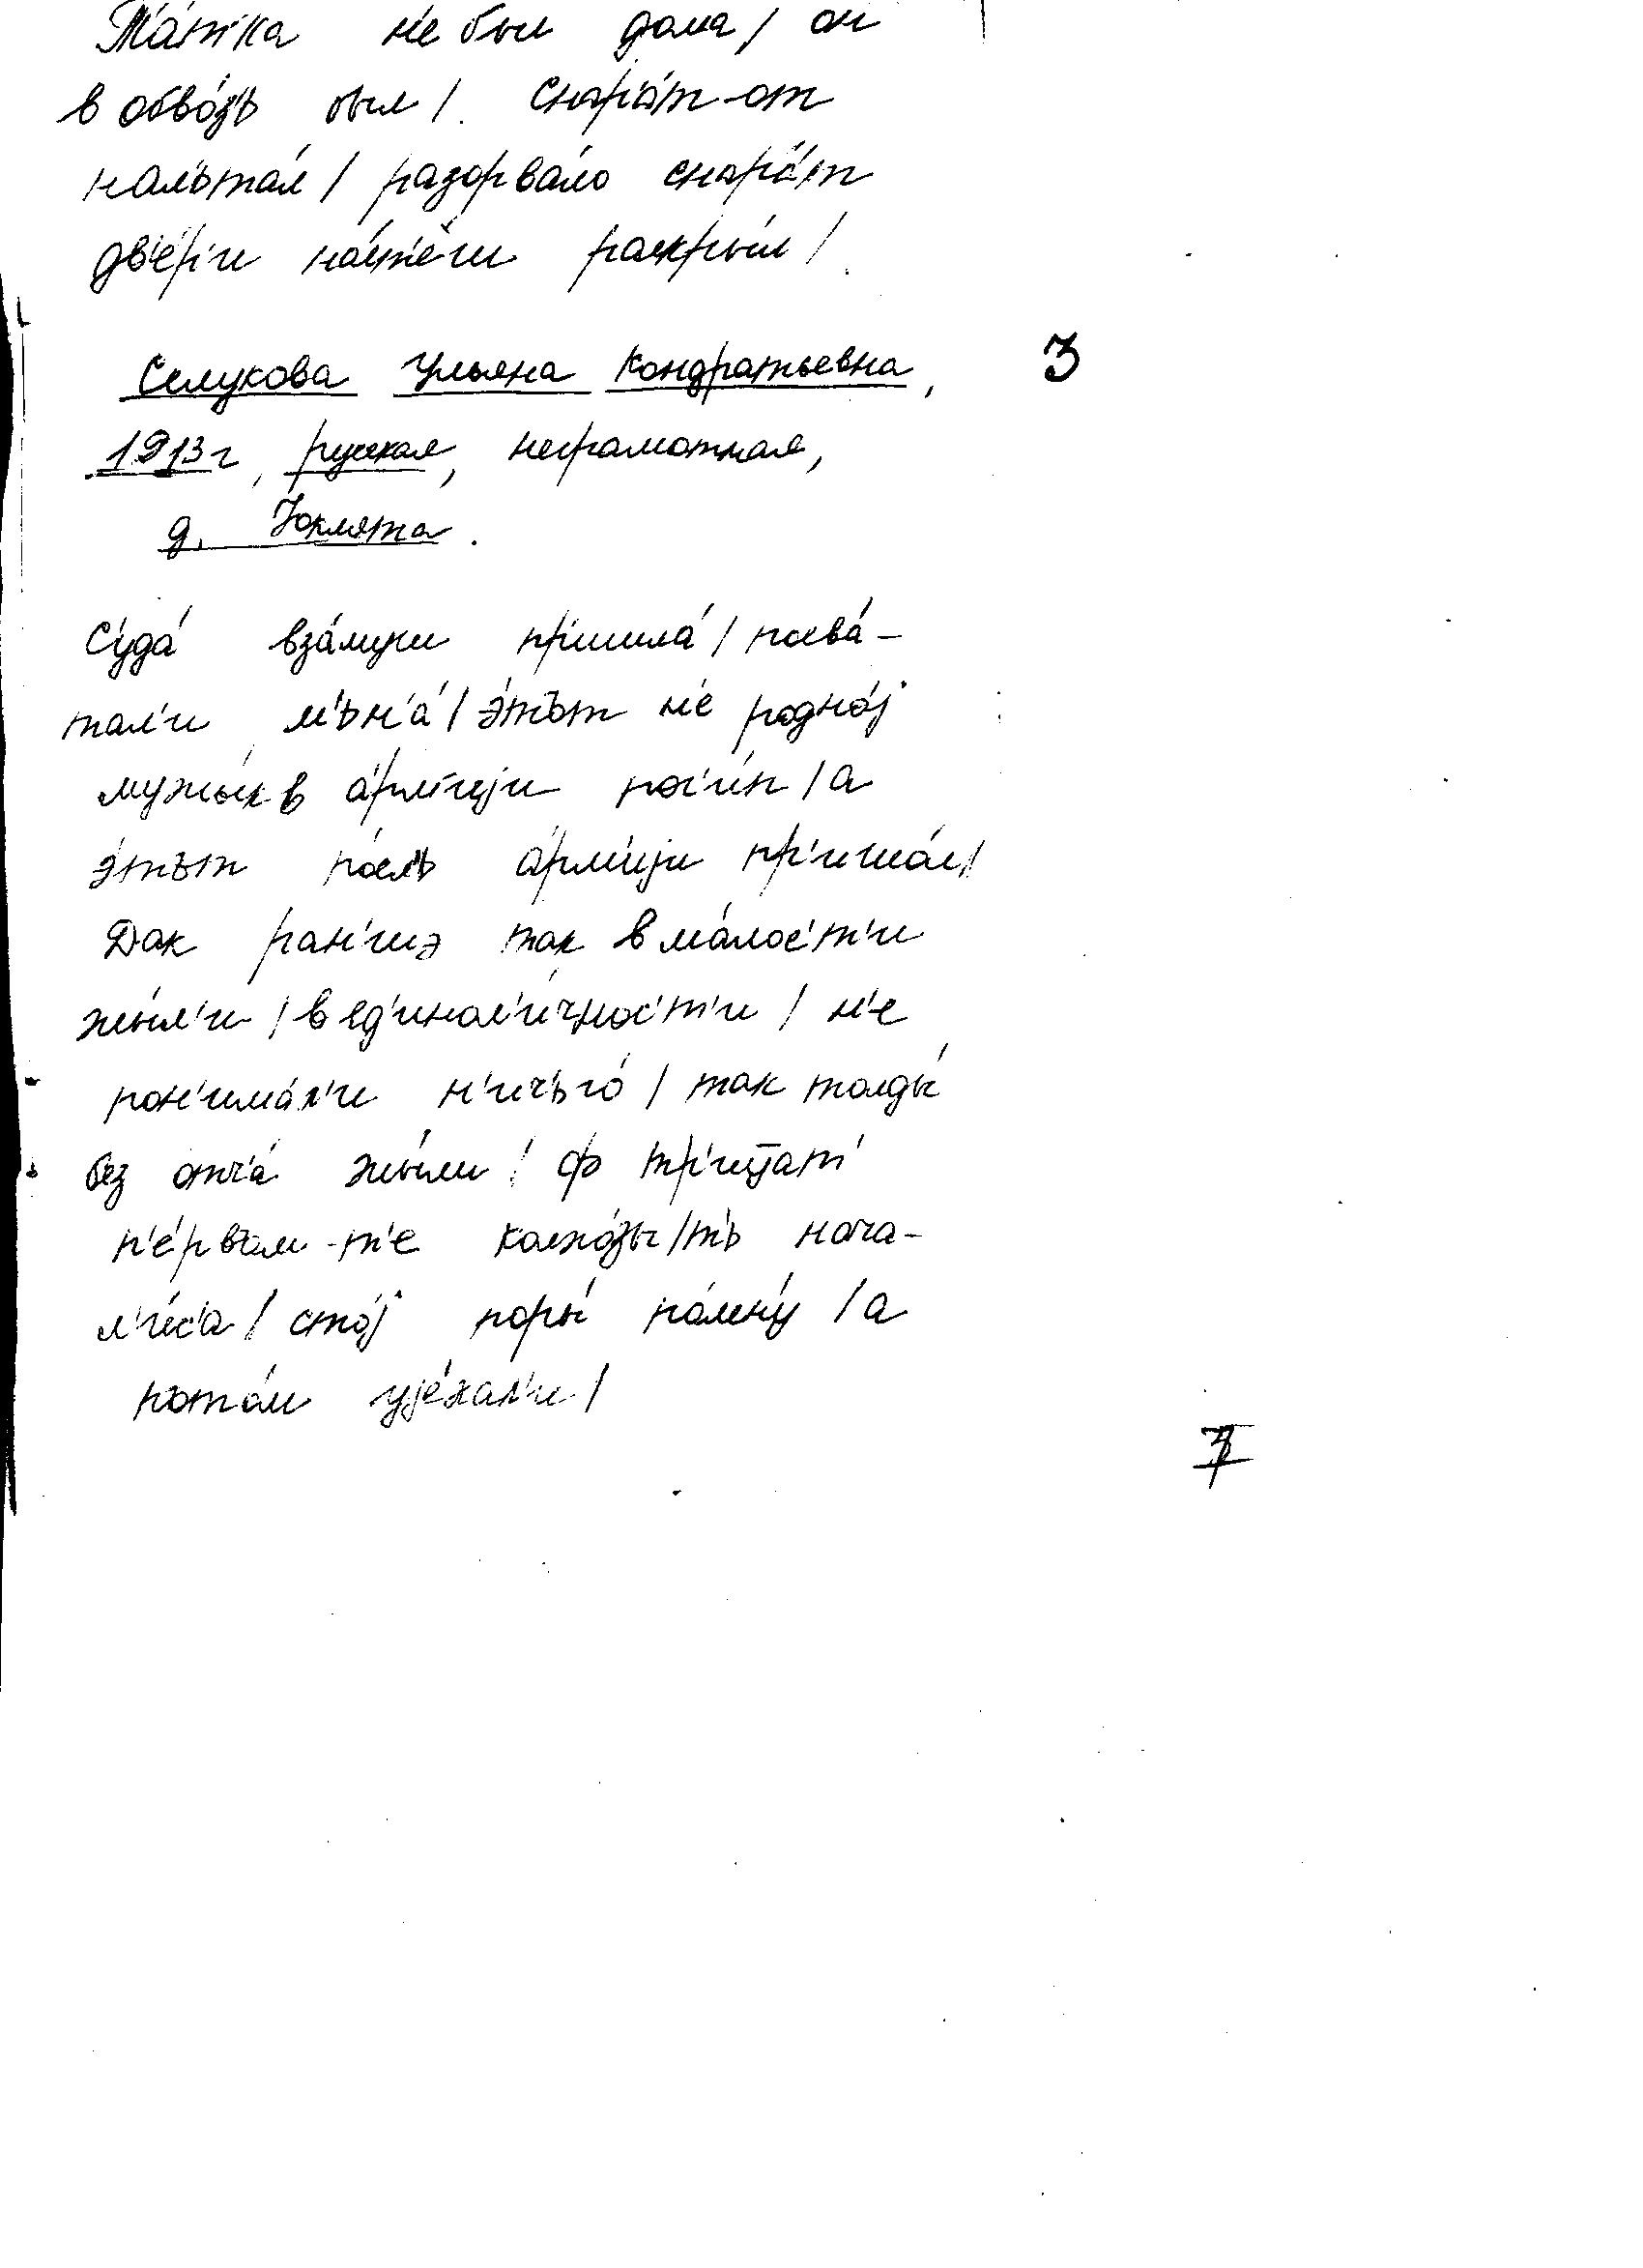 Т'а́т'ка н'е был дома / он
в обво́з'ь был /. Снар'а́т-от
нал'ьта́л / разорва́ло снар'а́т
дв'е́р'и на́ст'еги раскры́л /.
Селукова Ульяна Кондратьевна, 3
1913 г, русская, неграмотная,
д. Юклята.
С'уда́ вза́муш пришла́ / посва́-
тал'и м'ьн'а́ / э́тът н'е родно́j
мужы́к в а́рм'иjи пог'и́п / а
э́тът по́сл'ь а́рм'иjи пр'ишо́л /
Дак ран'шэ так в ма́лос'т'и
жы́л'и / в ед'инол'и́чнос'т'и / н'е
пон'има́л'и н'ич'ьго́ / так толды́
без отц'а́ жы́ли / ф тр'иц̄ат'
п'е́рвъм-т'е колхо́зы / т'ь нача-
л'и́с'а / с то́j поры́ по́мн'у / а
пото́м уjе́хал'и /
7